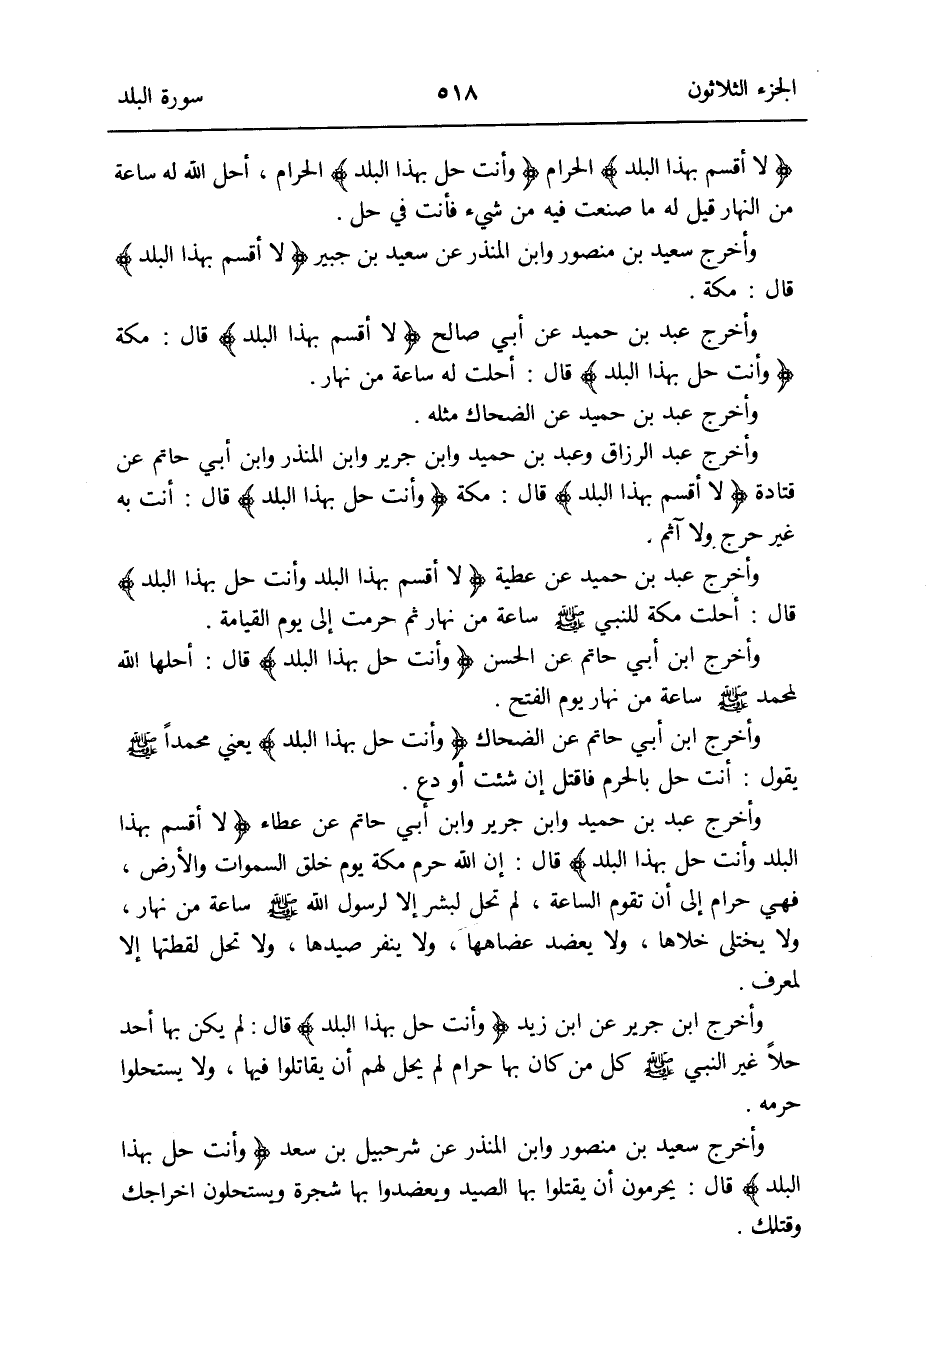 الجزء الثلاثون ٥١٨ سورة البلد
﴿ لا أقسم بهذا البلد ﴾ الحرام ﴿ وأنت حل بهذا البلد ﴾ الحرام ، أحل الله له ساعة
من النهار قيل له ما صنعت فيه من شيء فأنت في حل .
وأخرج سعيد بن منصور وابن المنذر عن سعيد بن جبير ﴿ لا أقسم بهذا البلد ﴾
قال : مكة .
وأخرج عبد بن حميد عن أبي صالح ﴿ لا أقسم بهذا البلد ﴾ قال : مكة
﴿ وأنت حل بهذا البلد ﴾ قال : أحلت له ساعة من نهار .
وأخرج عبد بن حميد عن الضحاك مثله .
وأخرج عبد الرزاق وعبد بن حميد وابن جرير وابن المنذر وابن أبي حاتم عن
قتادة ﴿ لا أقسم بهذا البلد ﴾ قال : مكة ﴿ وأنت حل بهذا البلد ﴾ قال : أنت به
غير حرج ولا آثم .
وأخرج عبد بن حميد عن عطية ﴿ لا أقسم بهذا البلد وأنت حل بهذا البلد ﴾
قال : أحلت مكة للنبي ﷺ ساعة من نهار ثم حرمت إلى يوم القيامة .
وأخرج ابن أبي حاتم عن الحسن ﴿ وأنت حل بهذا البلد ﴾ قال : أحلها الله
لمحمد ﷺ ساعة من نهار يوم الفتح .
وأخرج ابن أبي حاتم عن الضحاك ﴿ وأنت حل بهذا البلد ﴾ يعني محمداً ﷺ
يقول : أنت حل بالحرم فاقتل إن شئت أو دع .
وأخرج عبد بن حميد وابن جرير وابن أبي حاتم عن عطاء ﴿ لا أقسم بهذا
البلد وأنت حل بهذا البلد ﴾ قال : إن الله حرم مكة يوم خلق السموات والأرض ،
فهي حرام إلى أن تقوم الساعة ، لم تحل لبشر إلا لرسول الله ﷺ ساعة من نهار ،
ولا يختلى خلاها ، ولا يعضد عضاهها ، ولا ينفر صيدها ، ولا تحل لقطتها إلا
لمعرف .
وأخرج ابن جرير عن ابن زيد ﴿ وأنت حل بهذا البلد ﴾ قال : لم يكن بها أحد
حلاً غير النبي ﷺ كل من كان بها حرام لم يحل لهم أن يقاتلوا فيها ، ولا يستحلوا
حرمه .
وأخرج سعيد بن منصور وابن المنذر عن شرحبيل بن سعد ﴿ وأنت حل بهذا
البلد ﴾ قال : يحرمون أن يقتلوا بها الصيد ويعضدوا بها شجرة ويستحلون اخراجك
وقتلك .